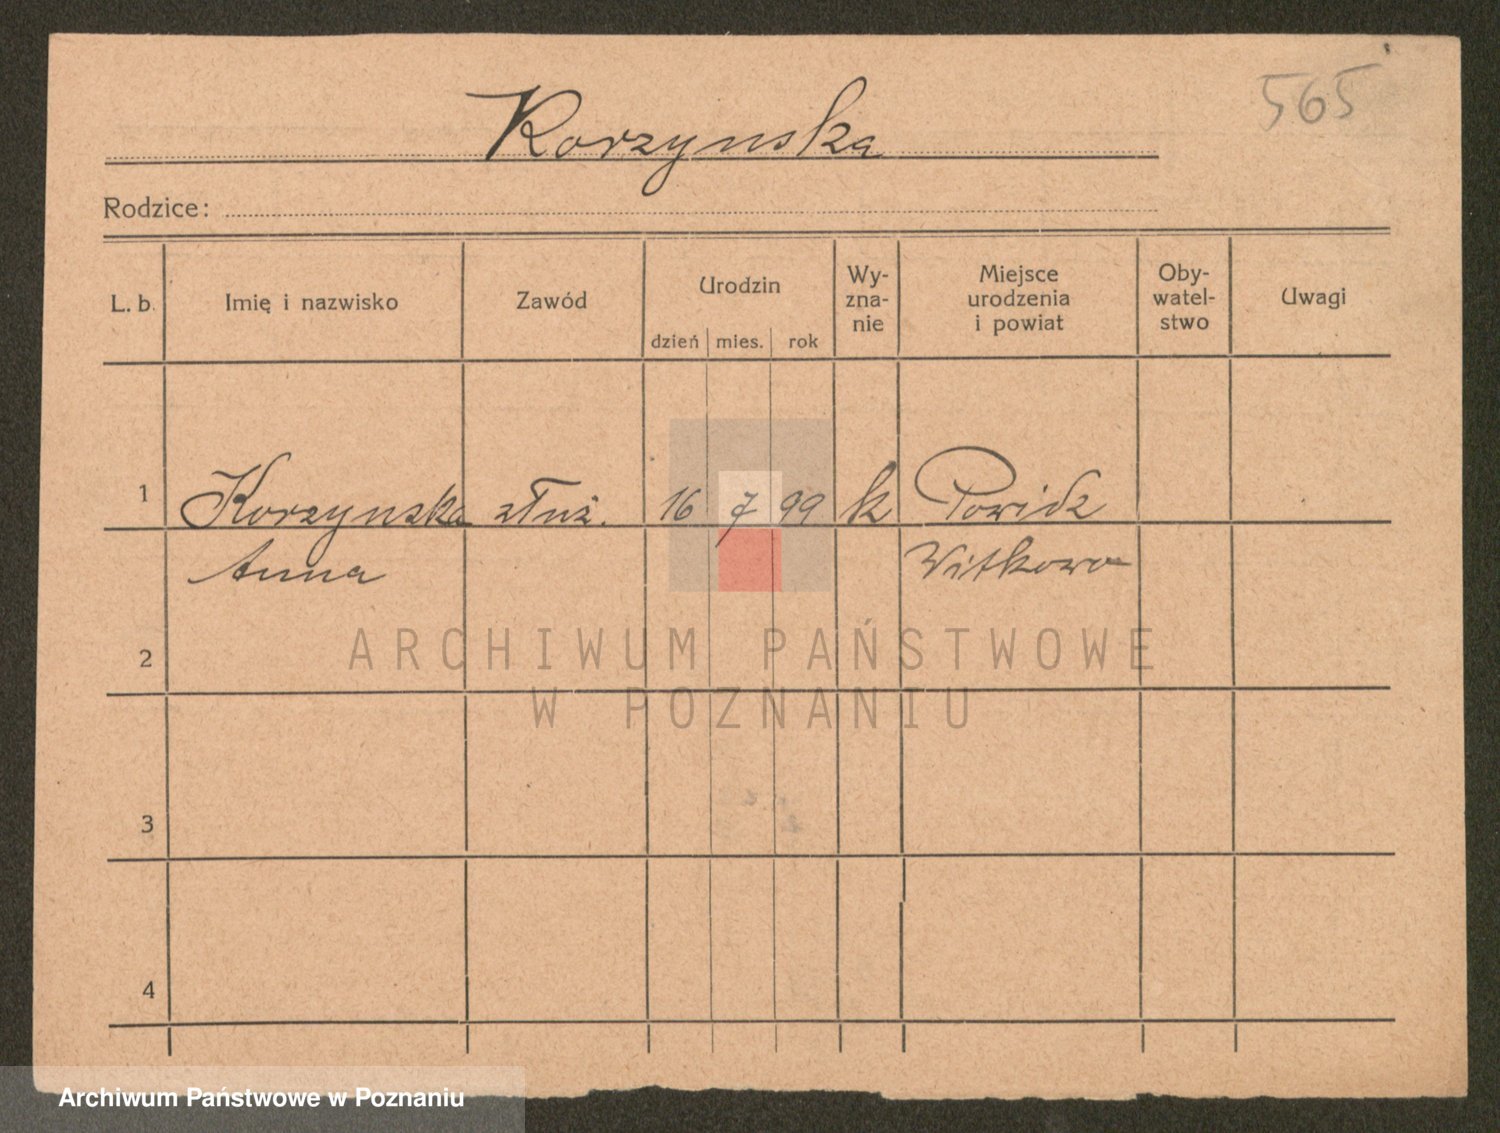 565
Korzynska
Rodzice:
L. b. Imię i nazwisko Zawód Urodzin dzień mies. rok Wy-zna-nie Miejsce urodzenia i powiat Oby-watel-stwo Uwagi
1 Korzynska służ. 16 7 99 k Powidz
Anna Witkowo
2
ARCHIWUM PAŃSTWOWE
W POZNANIU
3
4
Archiwum Państwowe w Poznaniu